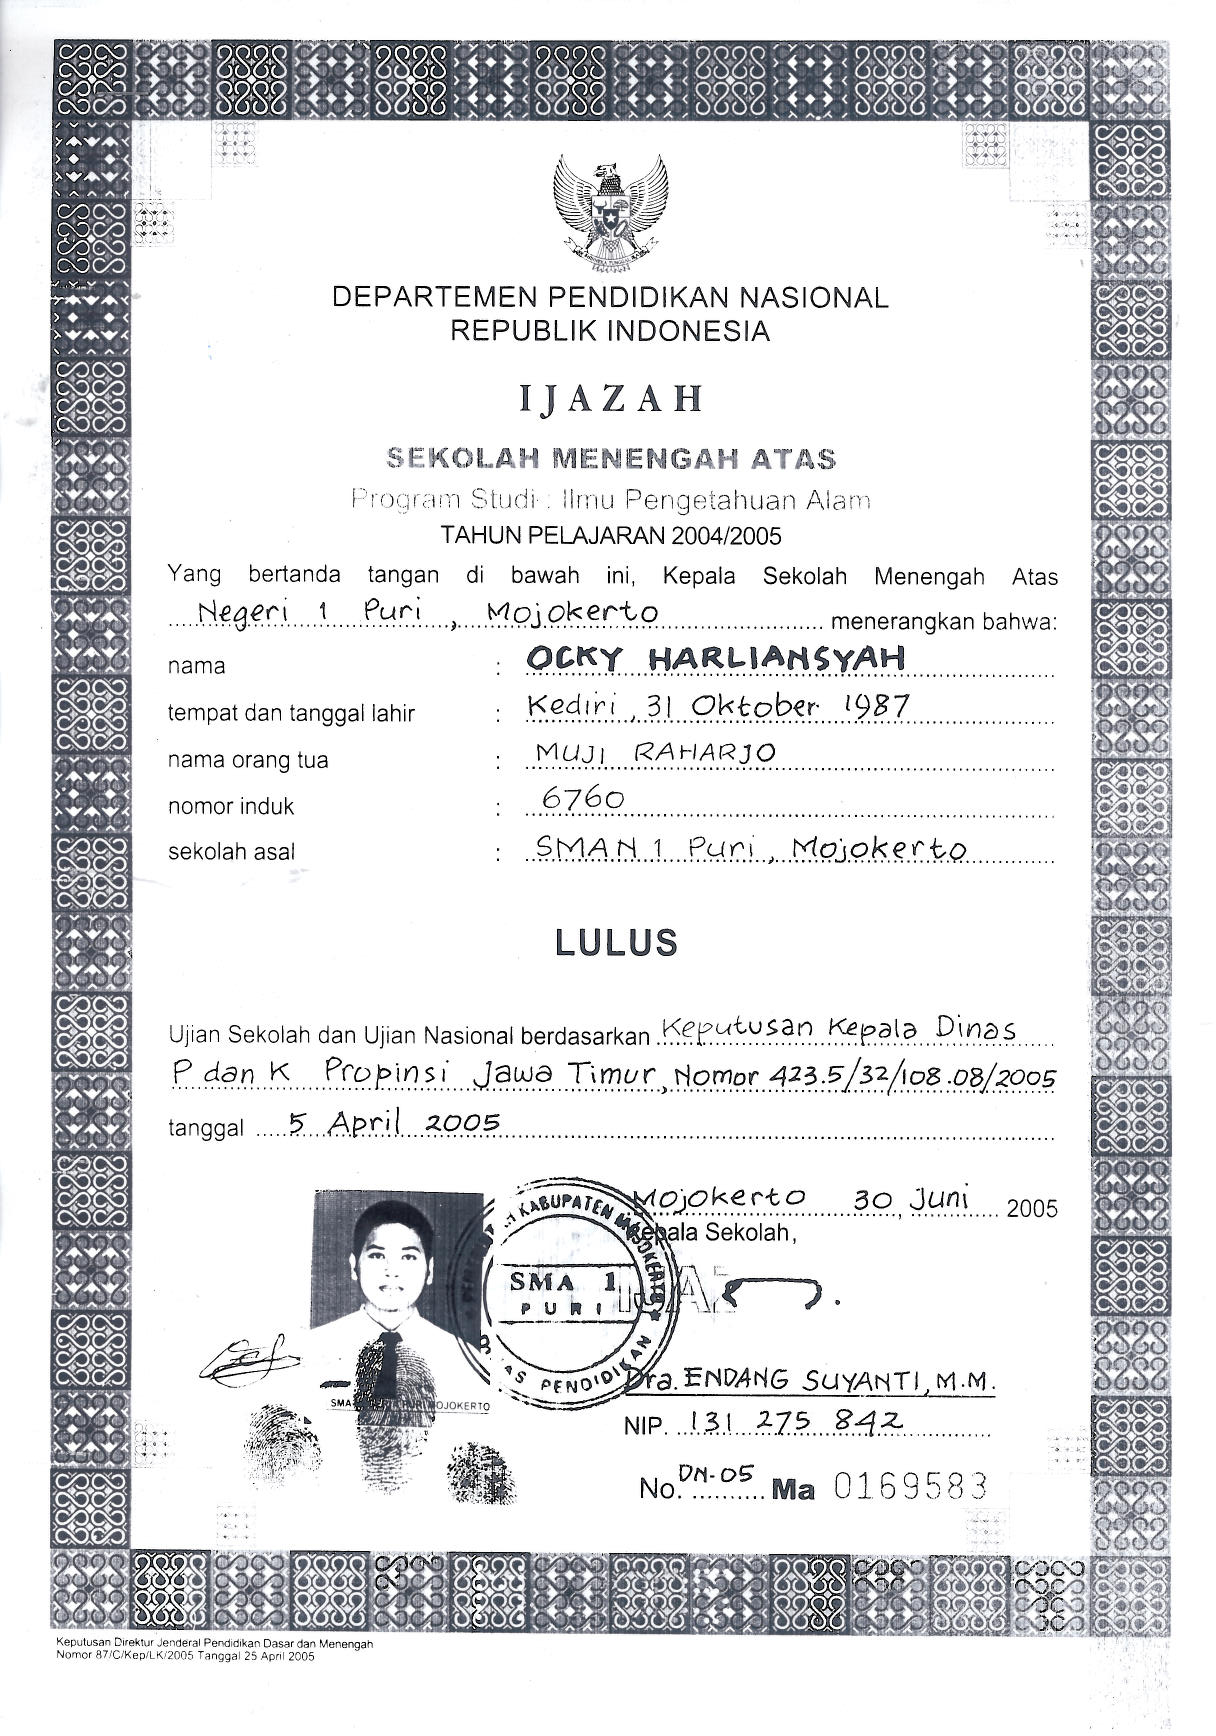 DEPARTEMEN PENDIDIKAN NASIONAL
REPUBLIK INDONESIA
IJAZAH
SEKOLAH MENENGAH ATAS
Program Studi : Ilmu Pengetahuan Alam
TAHUN PELAJARAN 2004/2005
Yang bertanda tangan di bawah ini, Kepala Sekolah Menengah Atas
Negeri 1 Puri, Mojokerto menerangkan bahwa:
nama : OCKY HARLIANSYAH
tempat dan tanggal lahir : Kediri, 31 Oktober 1987
nama orang tua : MUJI RAHARJO
nomor induk : 6760
sekolah asal : SMAN 1 Puri, Mojokerto
LULUS
Ujian Sekolah dan Ujian Nasional berdasarkan Keputusan Kepala Dinas
P dan K Propinsi Jawa Timur, Nomor 423.5/32/108.08/2005
tanggal 5 April 2005
Mojokerto 30, Juni 2005
Kepala Sekolah,
KABUPATEN MOJOKERTO
SMA 1
PURI
DINAS PENDIDIKAN
Dra. ENDANG SUYANTI, M.M.
NIP. 131 275 842
MOJOKERTO
No. DN-05 Ma 0169583
Keputusan Direktur Jenderal Pendidikan Dasar dan Menengah
Nomor 87/C/Kep/LK/2005 Tanggal 25 April 2005